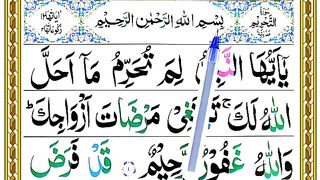 بِسْمِ اللّٰهِ الرَّحْمٰنِ الرَّحِيْمِ
يٰۤاَيُّهَا النَّبِیُّ لِمَ تُحَرِّمُ مَاۤ اَحَلَّ
اللّٰهُ لَكَ ۚ تَبْتَغِیْ مَرْضَاتَ اَزْوَاجِكَ ؕ
وَاللّٰهُ غَفُوْرٌ رَّحِيْمٌ ۝۱ قَدْ فَرَضَ